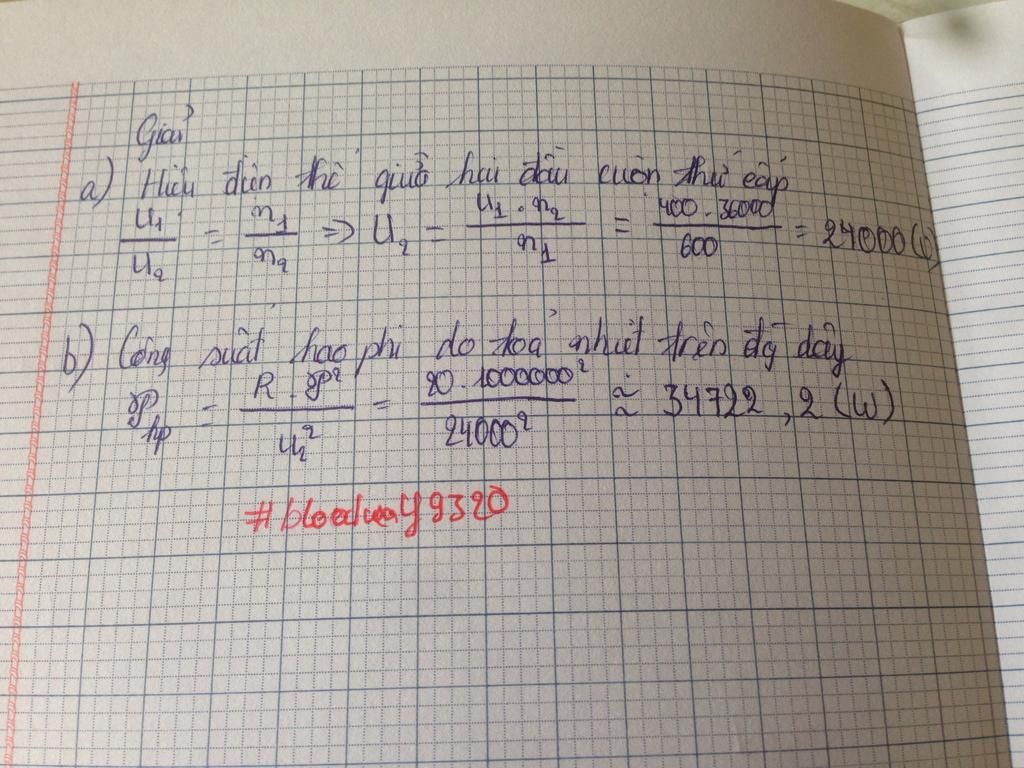 Giải
a) Hiệu điện thế giữa hai đầu cuộn thứ cấp
U₁/U₂ = n₁/n₂ => U₂ = U₁.n₂/n₁ = 400.36000/600 = 24000(V)
b) Công suất hao phí do toả nhiệt trên đg dây
𝒫hp = R.𝒫²/U₂² = 20.1000000²/24000² ≈ 34722,2 (W)